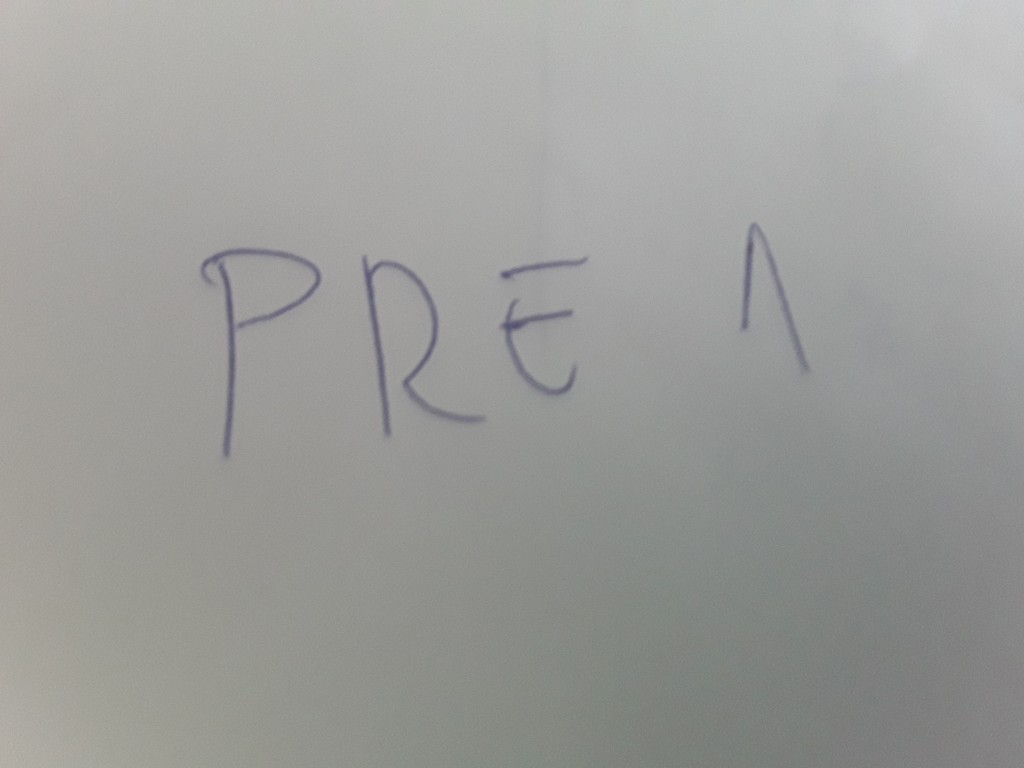 PRE 1